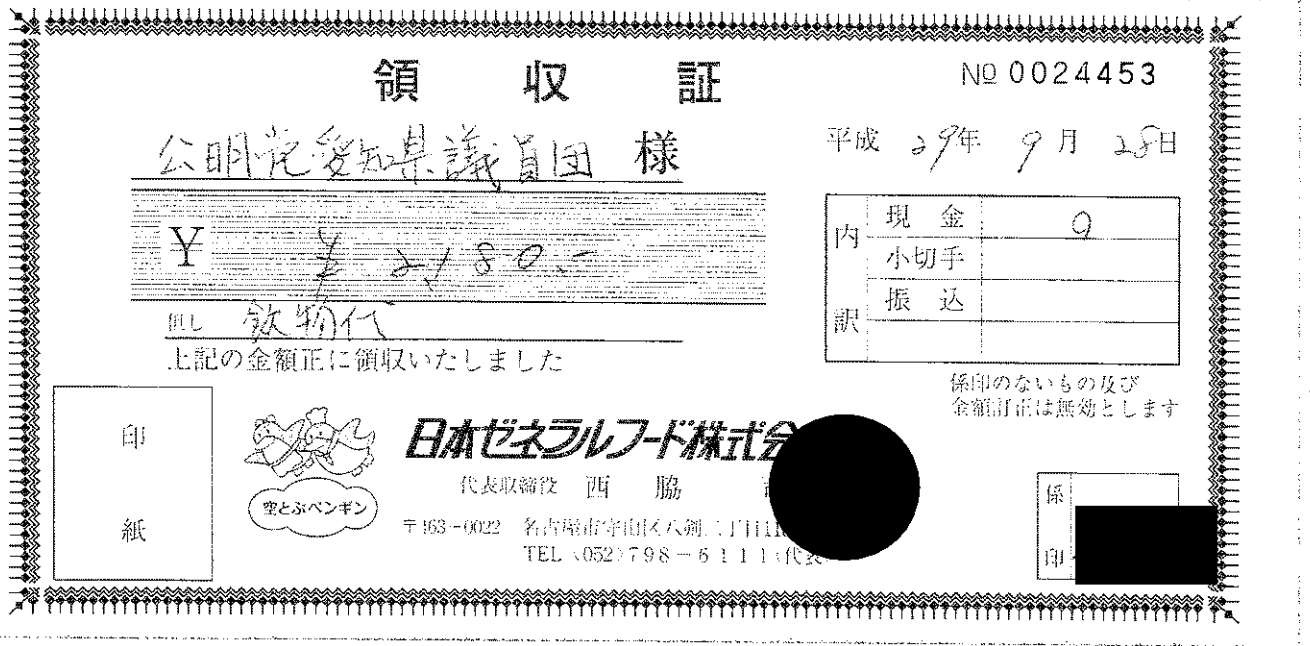 領収証
№ 0024453
公明党愛知県議員団 様
平成 29年 9月 28日
¥ ¥2,180.-
但し 飲物代
上記の金額正に領収いたしました
内訳
現金
小切手
振込
係印のないもの及び
金額訂正は無効とします
印紙
空とぶペンギン
日本ゼネラルフード株式会
代表取締役 西脇
〒463-0022 名古屋市守山区八剣二丁目
TEL (052) 798-6111 (代表
係印